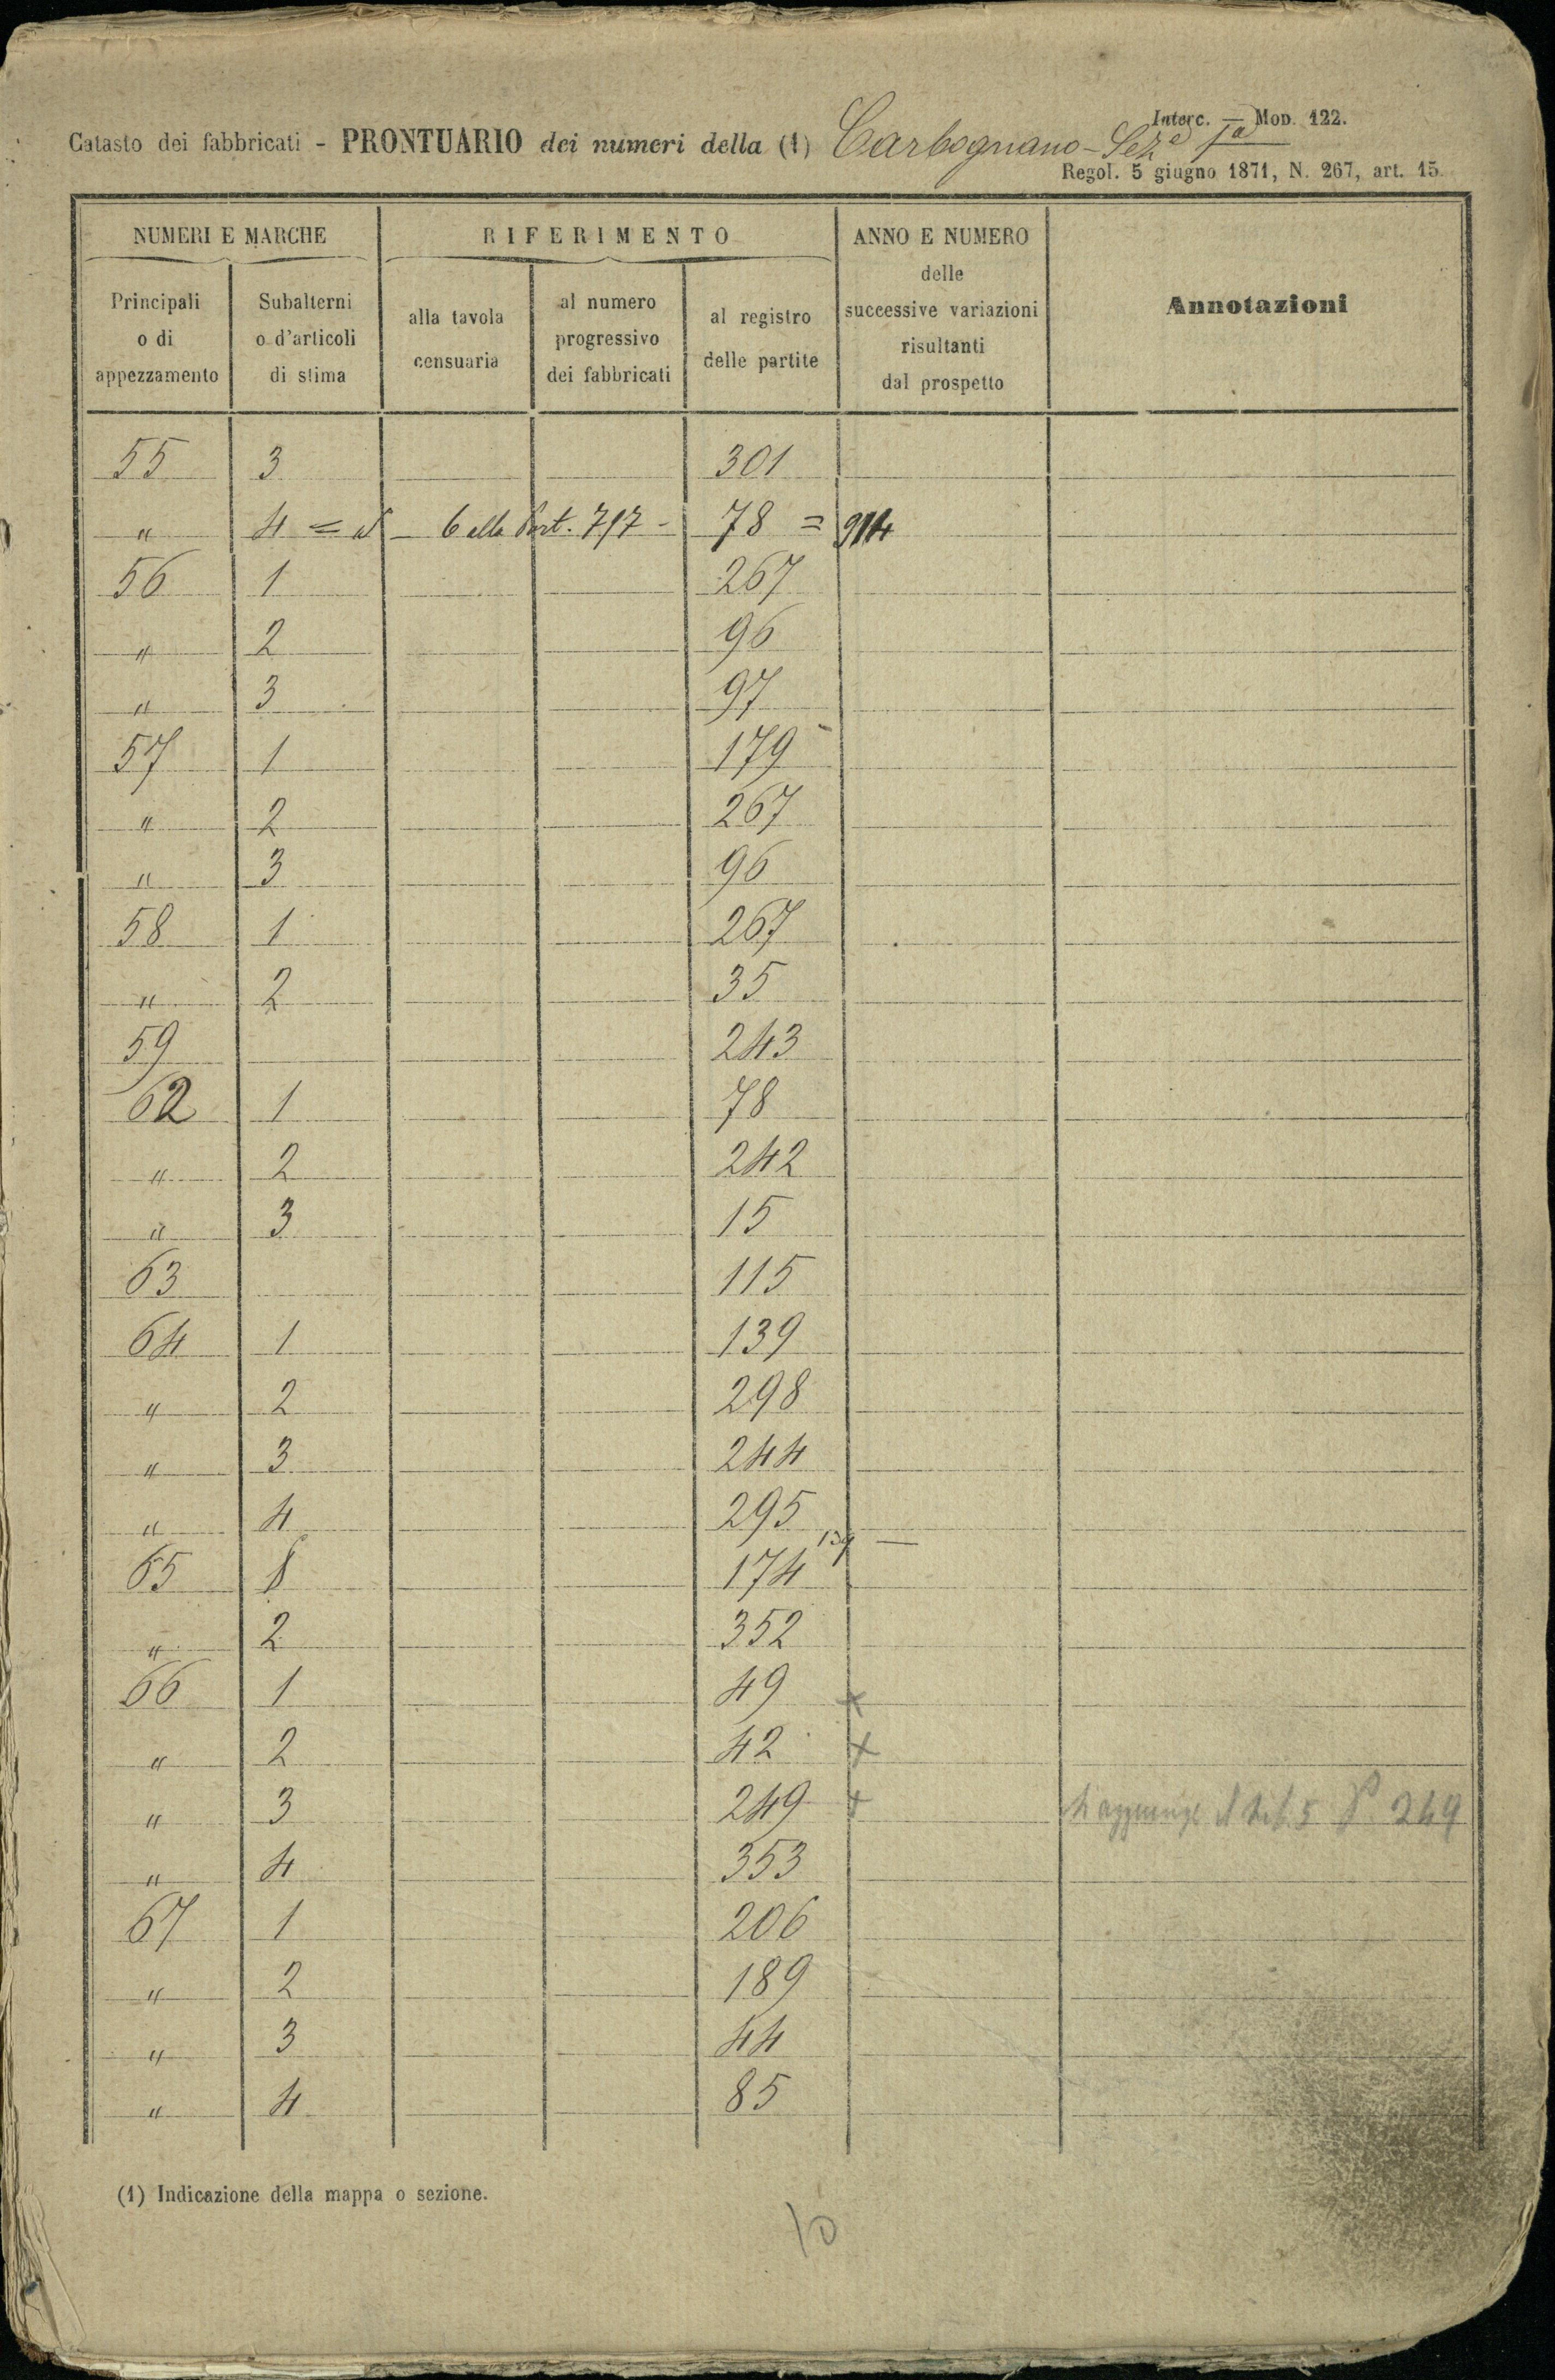 Interc. — Mod. 122.
Catasto dei fabbricati - PRONTUARIO dei numeri della (1) Carbognano - Sezª 1ª
Regol. 5 giugno 1871, N. 267, art. 15.
NUMERI E MARCHE RIFERIMENTO ANNO E NUMERO delle successive variazioni risultanti dal prospetto Annotazioni
Principali o di appezzamento Subalterni o d'articoli di stima alla tavola censuaria al numero progressivo dei fabbricati al registro delle partite
55 3 301
" 4 = 6 alla Part. 717 - 78 = 914
56 1 267
" 2 96
" 3 97
57 1 179
" 2 267
" 3 96
58 1 267
" 2 35
59 243
62 1 78
" 2 242
" 3 15
63 115
64 1 139
" 2 298
" 3 244
" 4 295
139 —
65 1 174
" 2 352
66 1 49 x
" 2 42 x
" 3 249 x si aggiunge il sub. 5 P. 249
" 4 353
67 1 206
" 2 189
" 3 44
" 4 85
(1) Indicazione della mappa o sezione.
10